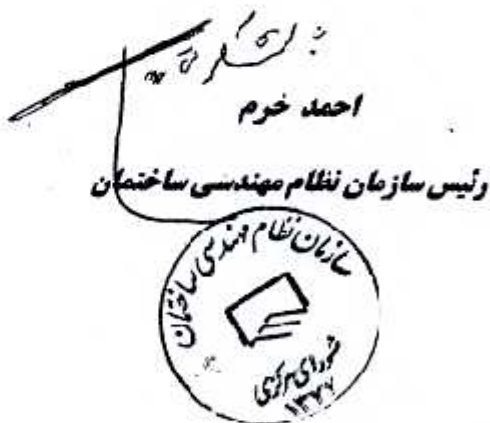 با تشکر
احمد خرم
رئیس سازمان نظام مهندسی ساختمان
سازمان نظام مهندسی ساختمان
شورای مرکزی
۱۳۷۷